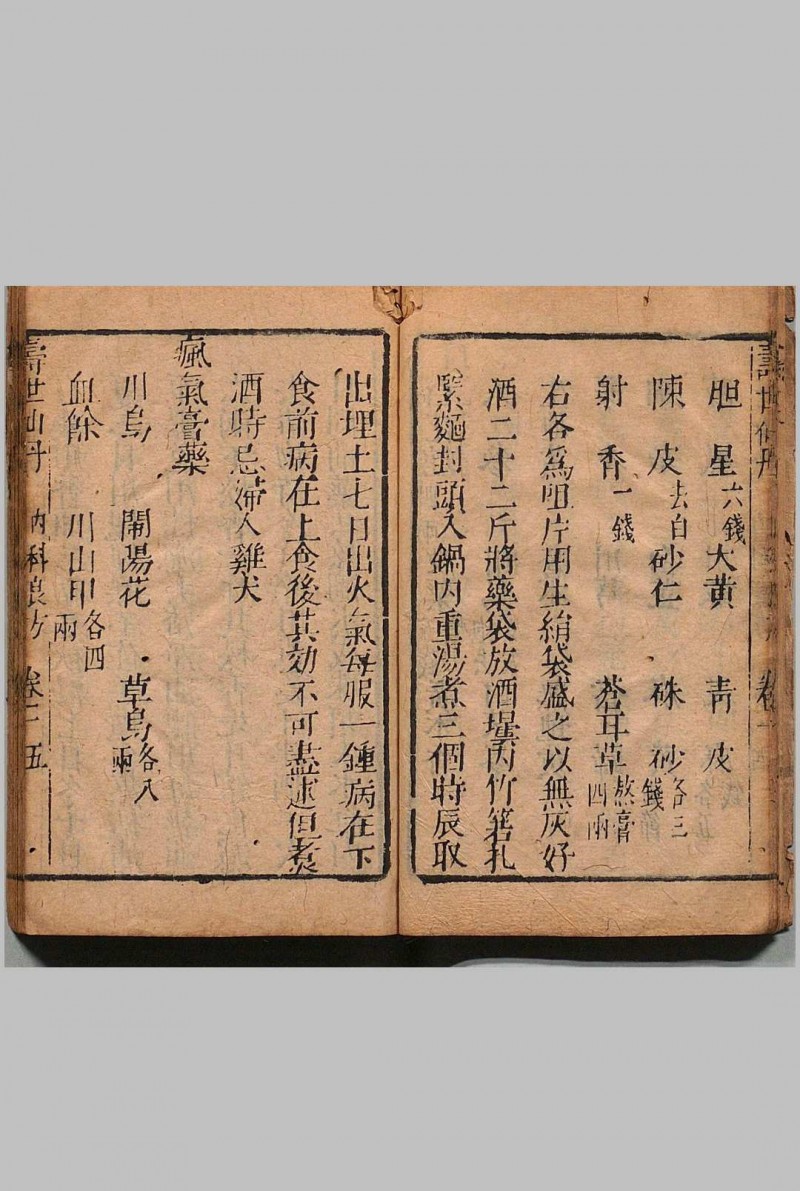 壽世仙丹
胆星六錢 大黄 青皮
陳皮去白 砂仁 硃砂各三錢
射香一錢 蒼耳草熬膏四兩
右各爲咀片用生絹袋盛之以無灰好
酒二十二斤將藥袋放酒墰內竹箬扎
緊麵封頭入鍋内重湯煮三個時辰取
出埋土七日出火氣每服一鍾病在下
食前病在上食後其効不可盡述但煮
酒時忌婦人雞犬
瘋氣膏藥
川烏 鬧陽花 草烏各八兩
血餘 川山甲各四兩
壽世仙丹 内科良方 卷二 五